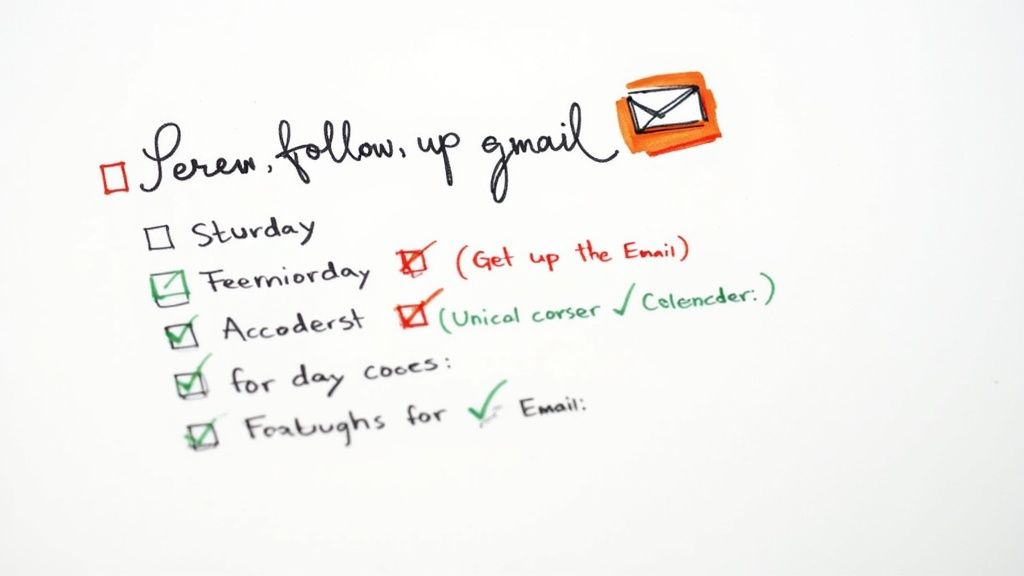 Serew, follow, up gmail
Sturday
Feerniorday (Get up the Email)
Accoderst (Unical corser ✓ Celencder:)
for day cooes:
Foxbughs for ✓ Email: